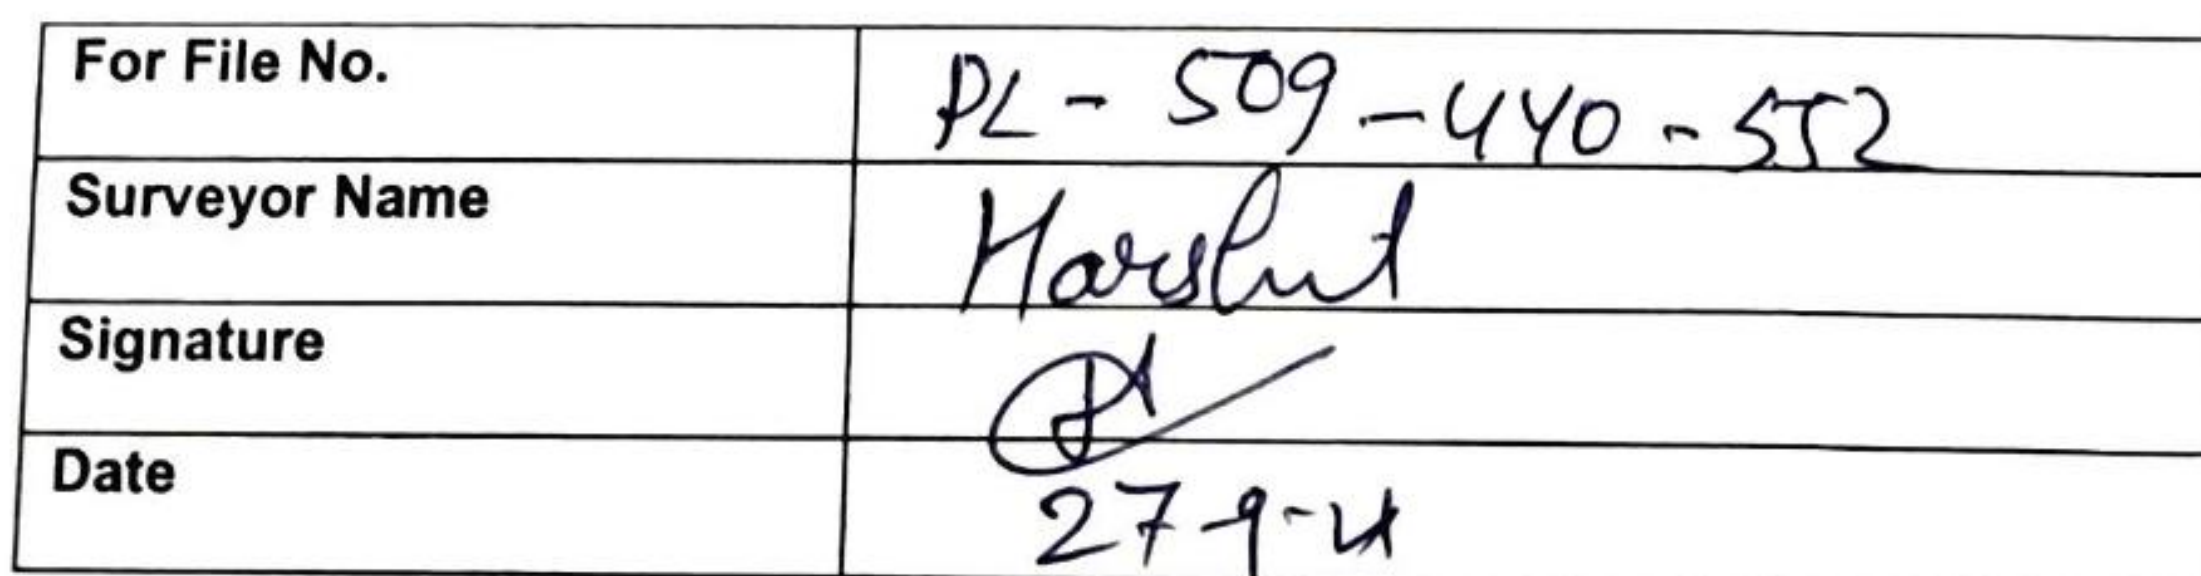 For File No. PL - 509 - 440 - 552
Surveyor Name Harshit
Signature
Date 27-9-